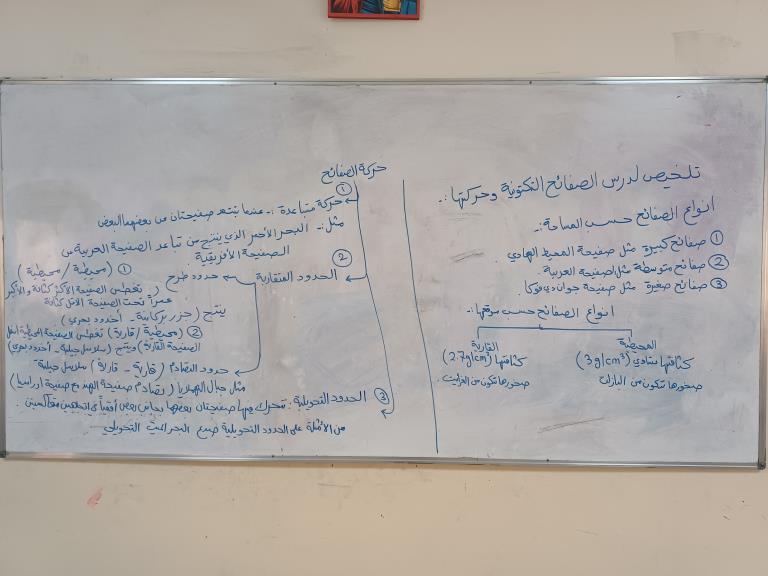 تلخيص لدرس الصفائح التكتونية وحركتها :.
انواع الصفائح حسب المساحة :.
① صفائح كبيرة مثل صفيحة المحيط الهادي
② صفائح متوسطة مثل الصفيحة العربية
③ صفائح صغيرة مثل صفيحة جوان دي فوكا
انواع الصفائح حسب موقعها :.
المحيطية
كثافتها تساوي (3g/cm³)
صخورها تتكون من البازلت
القارية
كثافتها (2.7g/cm³)
صخورها تتكون من الغرانيت
حركة الصفائح
① حركة متباعدة :. عندما تبتعد صفيحتان عن بعضهما البعض
مثل :. البحر الأحمر الذي ينتج من تباعد الصفيحة العربية عن
الصفيحة الأفريقية
② الحدود المتقاربة
حدود طرح
① (محيطية / محيطية)
تغطس الصفيحة الأكثر كثافة والأكبر
عمراً تحت الصفيحة الاقل كثافة
ينتج (جزر بركانية - أخدود بحري)
② (محيطية / قارية) تغطس الصفيحة المحيطية أسفل
الصفيحة القارية وينتج (سلاسل جبلية - أخدود بحري)
حدود التصادم (قارية - قارية) سلاسل جبلية
مثل جبال الهملايا (تصادم صفيحة الهند مع صفيحة اوراسيا)
③ الحدود التحويلية : تتحرك فيها صفيحتان بعضها بجانب بعض أفقياً في اتجاهين متعاكسين
من الأمثلة على الحدود التحويلية صدع البحر الميت التحويلي